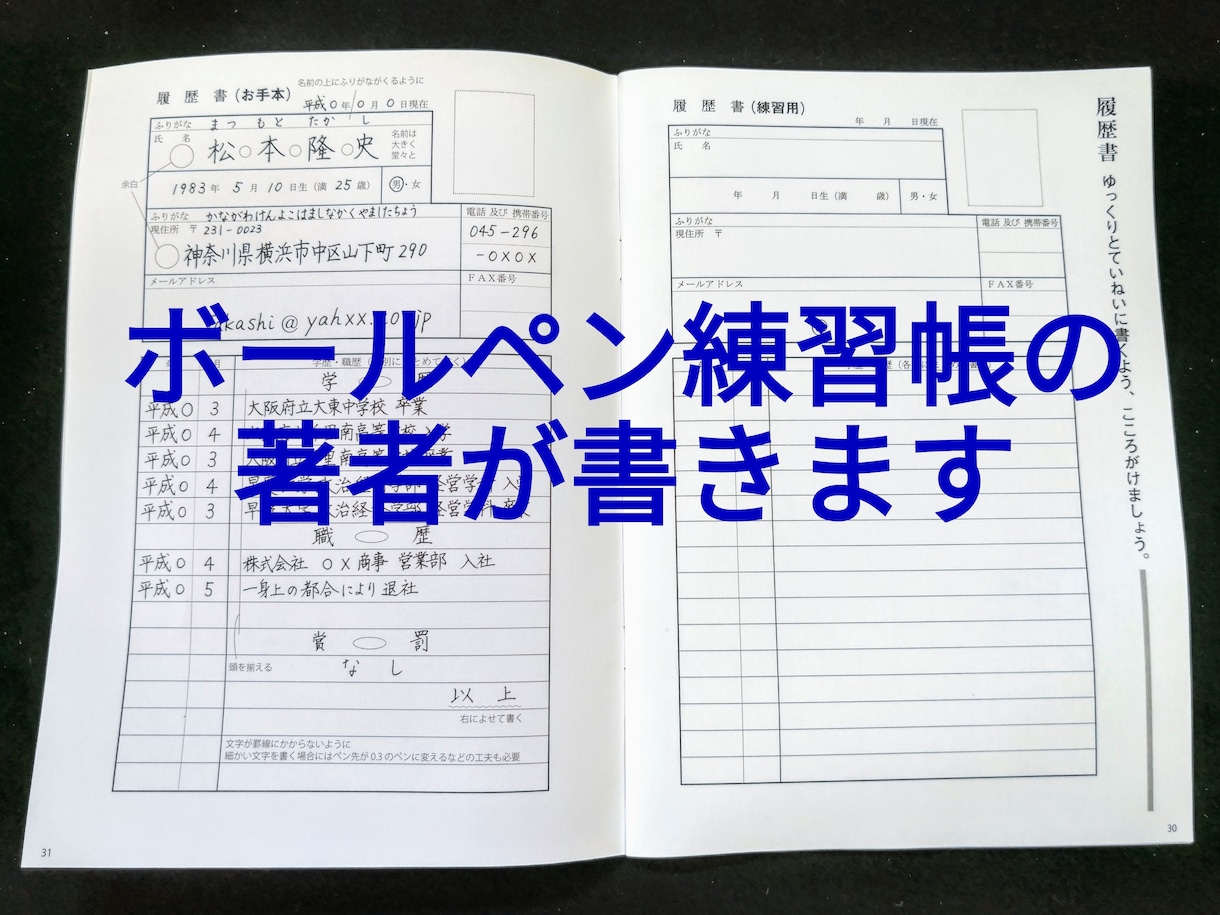 ボールペン練習帳の
著者が書きます
名前の上にふりがながくるように
履歴書(お手本)
平成〇年〇月〇日現在
ふりがな まつ もと たか し
氏名
松本隆史
名前は
大きく
堂々と
余白
1983年 5月 10日生(満 25歳) 男・女
ふりがな かながわけんよこはましなかくやましたちょう
現住所 〒231-0023
神奈川県横浜市中区山下町290
電話 及び 携帯番号
045-296
-0X0X
メールアドレス
FAX番号
akashi@yahxx.co.jp
月 学歴・職歴
学 歴
平成〇 3 大阪府立大東中学校 卒業
平成〇 4 南高等学校 入学
平成〇 3 大阪 里南高等
平成〇 4 早 政治経 学部 経営学 入
平成〇 3 早 大学政治経 学部 経営学科 卒業
職 歴
平成〇 4 株式会社 〇X商事 営業部 入社
平成〇 5 一身上の都合により退社
賞 罰
頭を揃える
なし
以上
右によせて書く
文字が罫線にかからないように
細かい文字を書く場合にはペン先が0.3のペンに変えるなどの工夫も必要
31
履歴書(練習用)
年 月 日現在
ふりがな
氏名
年 月 日生(満 歳) 男・女
ふりがな
現住所 〒
電話 及び 携帯番号
メールアドレス
FAX番号
履歴書 ゆっくりとていねいに書くよう、こころがけましょう。
30